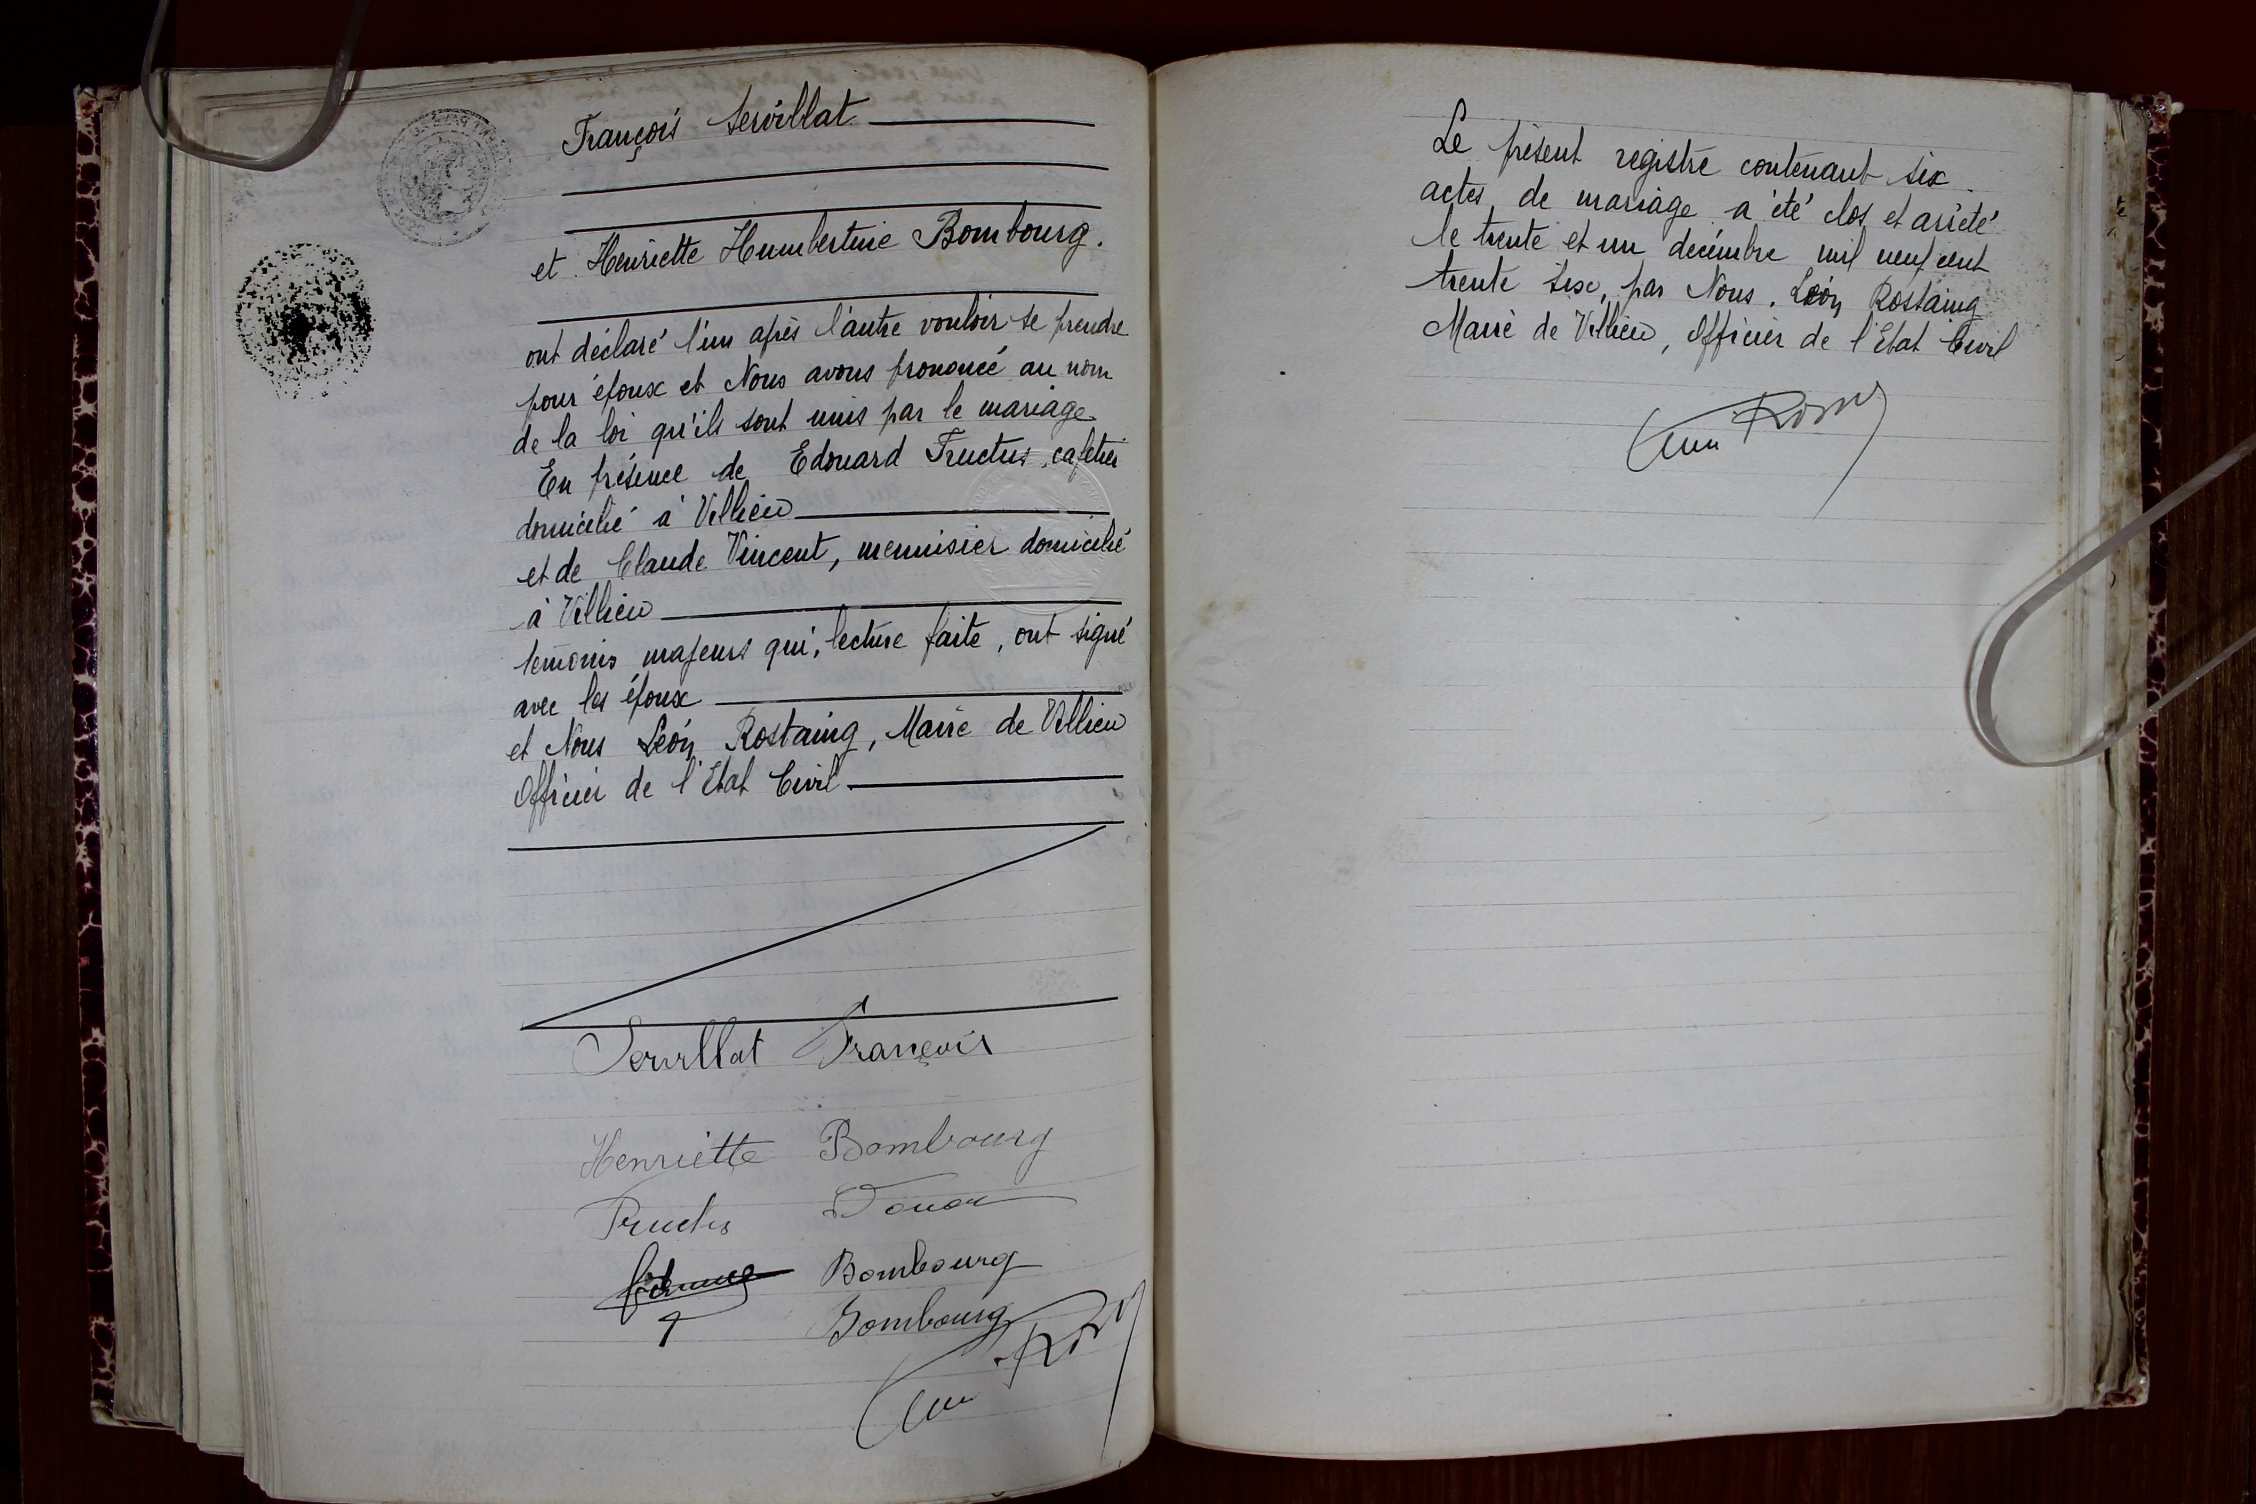 François Servillat
et Henriette Humbertine Bombourg.
ont déclaré l'un après l'autre vouloir se prendre
pour époux et Nous avons prononcé au nom
de la loi qu'ils sont unis par le mariage.
En présence de Edouard Fructus, cafetier
domicilié à Villieu
et de Claude Vincent, menuisier domicilié
à Villieu
témoins majeurs qui, lecture faite, ont signé
avec les époux
et Nous Léon Rostaing, Maire de Villieu
Officier de l'Etat Civil
Servillat François
Henriette Bombourg
Fructus
Bombourg
Bombourg
Le présent registre contenant six
actes de mariage a été clos et arrêté
le trente et un décembre mil neuf cent
trente six, par Nous. Léon Rostaing
Maire de Villieu, Officier de l'Etat Civil